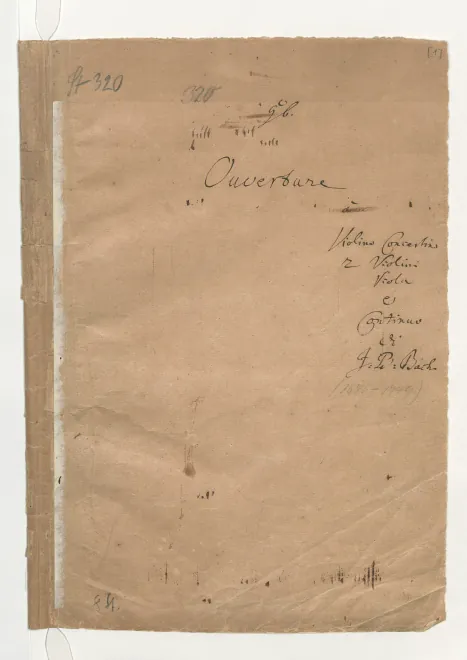 [1]
St 320
320
g b.
Ouverture
à
Violino Concertin
2 Violini
Viola
e
Continuo
di
J. B. Bach.